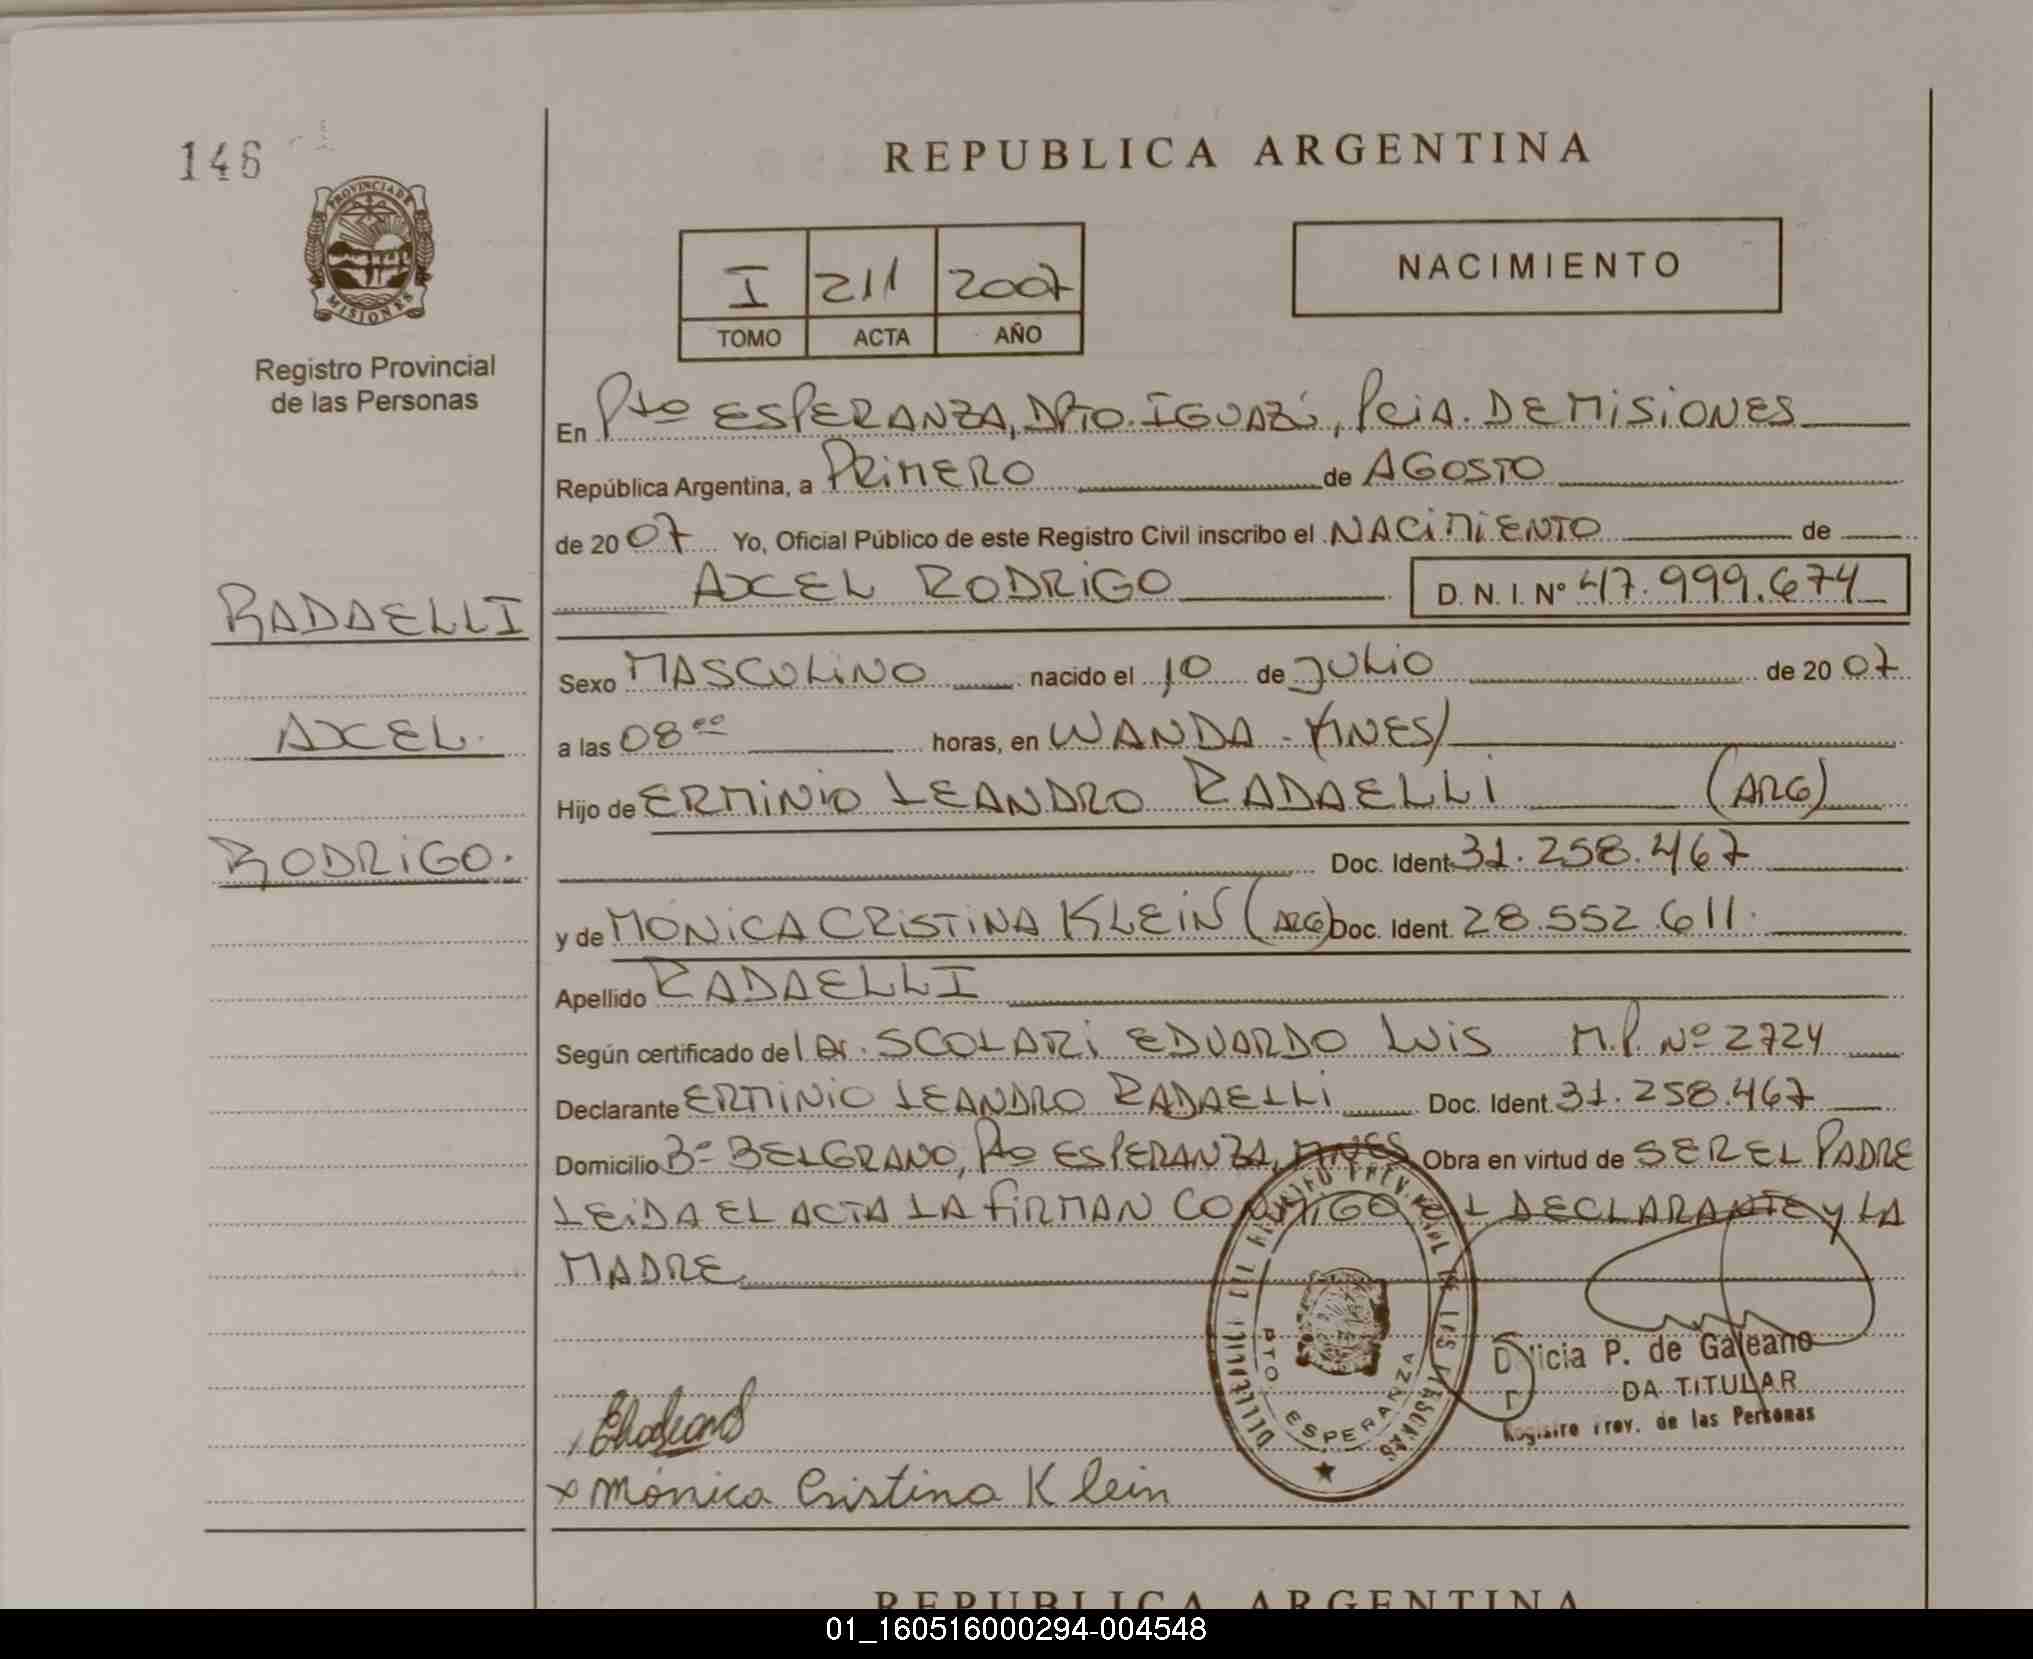 146
REPUBLICA ARGENTINA
PROVINCIA DE
MISIONES
Registro Provincial
de las Personas
I 211 2007
TOMO ACTA AÑO
NACIMIENTO
En Pto ESPERANZA, DPTO. IGUAZÚ, PCIA. DE MISIONES
República Argentina, a PRIMERO de AGOSTO
de 2007 Yo, Oficial Público de este Registro Civil inscribo el NACIMIENTO de
AXEL RODRIGO D. N. I. Nº 47.999.674
RADAELLI
AXEL.
RODRIGO.
Sexo MASCULINO nacido el 10 de JULIO de 2007
a las 08 00 horas, en WANDA - MNES/
Hijo de ERMINIO LEANDRO RADAELLI (ARG)
Doc. Ident. 31.258.467
y de MÓNICA CRISTINA KLEIN (ARG) Doc. Ident. 28.552.611.
Apellido RADAELLI
Según certificado del Dr. SCOLARI EDUARDO LUIS M.P. Nº 2724
Declarante ERMINIO LEANDRO RADAELLI Doc. Ident. 31.258.467
Domicilio Bº BELGRANO, Pto ESPERANZA, MNES Obra en virtud de SER EL PADRE
LEIDA EL ACTA LA FIRMAN CONMIGO EL DECLARANTE y LA
MADRE
PTO. ESPERANZA
Delicia P. de Galeano
DA TITULAR
Registro Prov. de las Personas
x Mónica Cristina Klein
REPUBLICA ARGENTINA
01_160516000294-004548